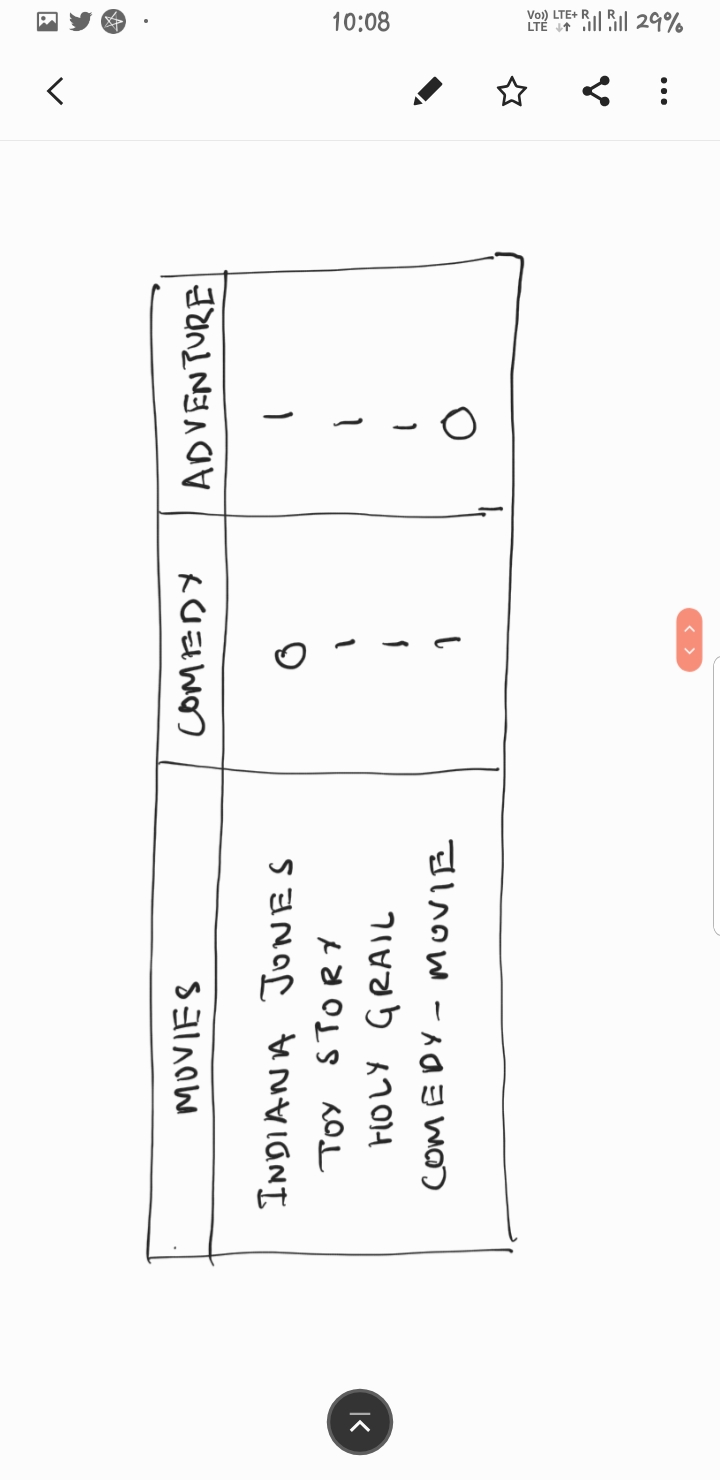 10:08
Vo) LTE LTE+ R R 29%
MOVIES COMEDY ADVENTURE
INDIANA JONES 0 1 1
TOY STORY 1 1
HOLY GRAIL 1 1
COMEDY - MOVIE 1 0